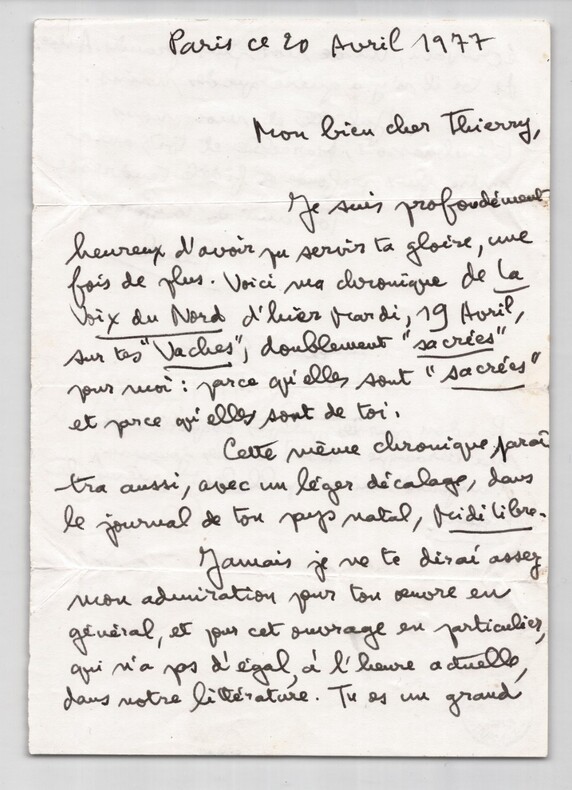 Paris ce 20 Avril 1977
Mon bien cher Thierry,
Je suis profondément
heureux d'avoir pu servir ta gloire, une
fois de plus. Voici ma chronique de La
Voix du Nord d'hier Mardi, 19 Avril,
sur tes "Vaches", doublement "sacrées"
pour moi : parce qu'elles sont "sacrées"
et parce qu'elles sont de toi.
Cette même chronique paraî
tra aussi, avec un léger décalage, dans
le journal de ton pays natal, Midi Libre.
Jamais je ne te dirai assez
mon admiration pour ton œuvre en
général, et pour cet ouvrage en particulier,
qui n'a pas d'égal, à l'heure actuelle,
dans notre littérature. Tu es un grand